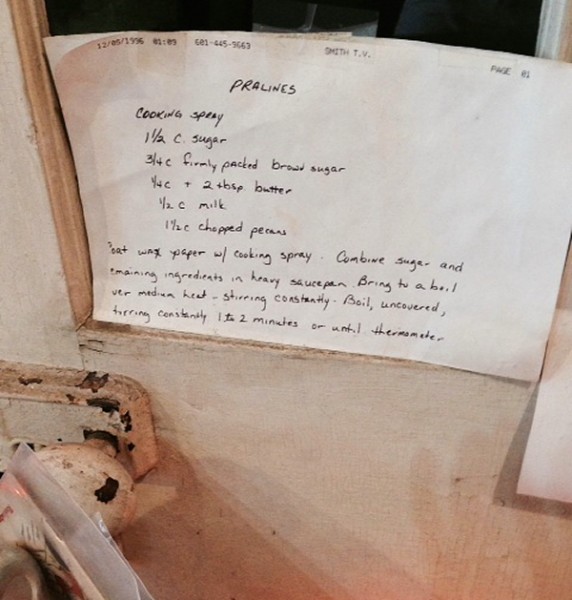 12/05/1996 01:09 601-445-9663 SMITH T.V. PAGE 01
PRALINES
COOKING SPRAY
1½ c. sugar
3/4 c firmly packed brown sugar
¼ c + 2 tbsp. butter
½ c milk
1½ c chopped pecans
oat wax paper w/ cooking spray. Combine sugar and
emaining ingredients in heavy saucepan. Bring to a boil
ver medium heat - stirring constantly. Boil, uncovered,
tirring constantly 1 to 2 minutes or until thermometer